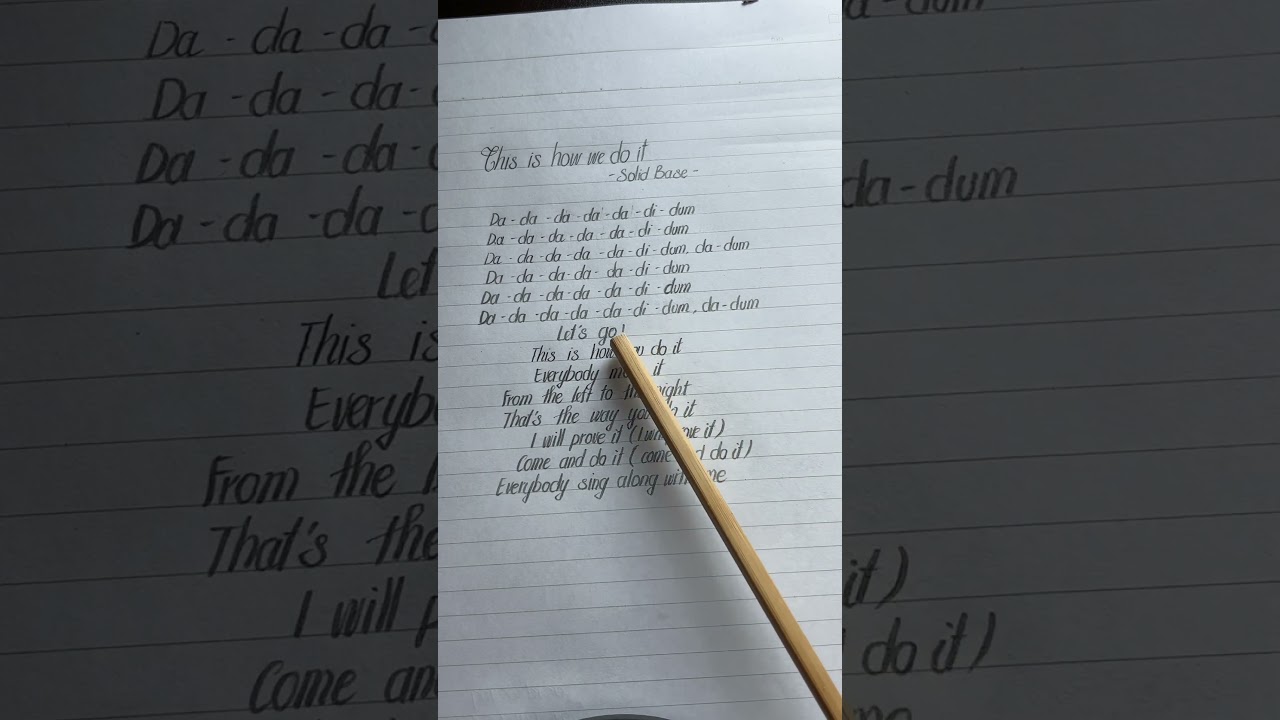 This is how we do it
- Solid Base -
Da - da - da - da - da - di - dum
Da - da - da - da - da - di - dum
Da - da - da - da - da - di - dum, da - dum
Da - da - da - da - da - di - dum
Da - da - da - da - da - di - dum
Da - da - da - da - da - di - dum, da - dum
Let's go!
This is do it
Everybody it
From the left to
That's the way it
I will prove it (
Come and do it (come do it)
Everybody sing along me